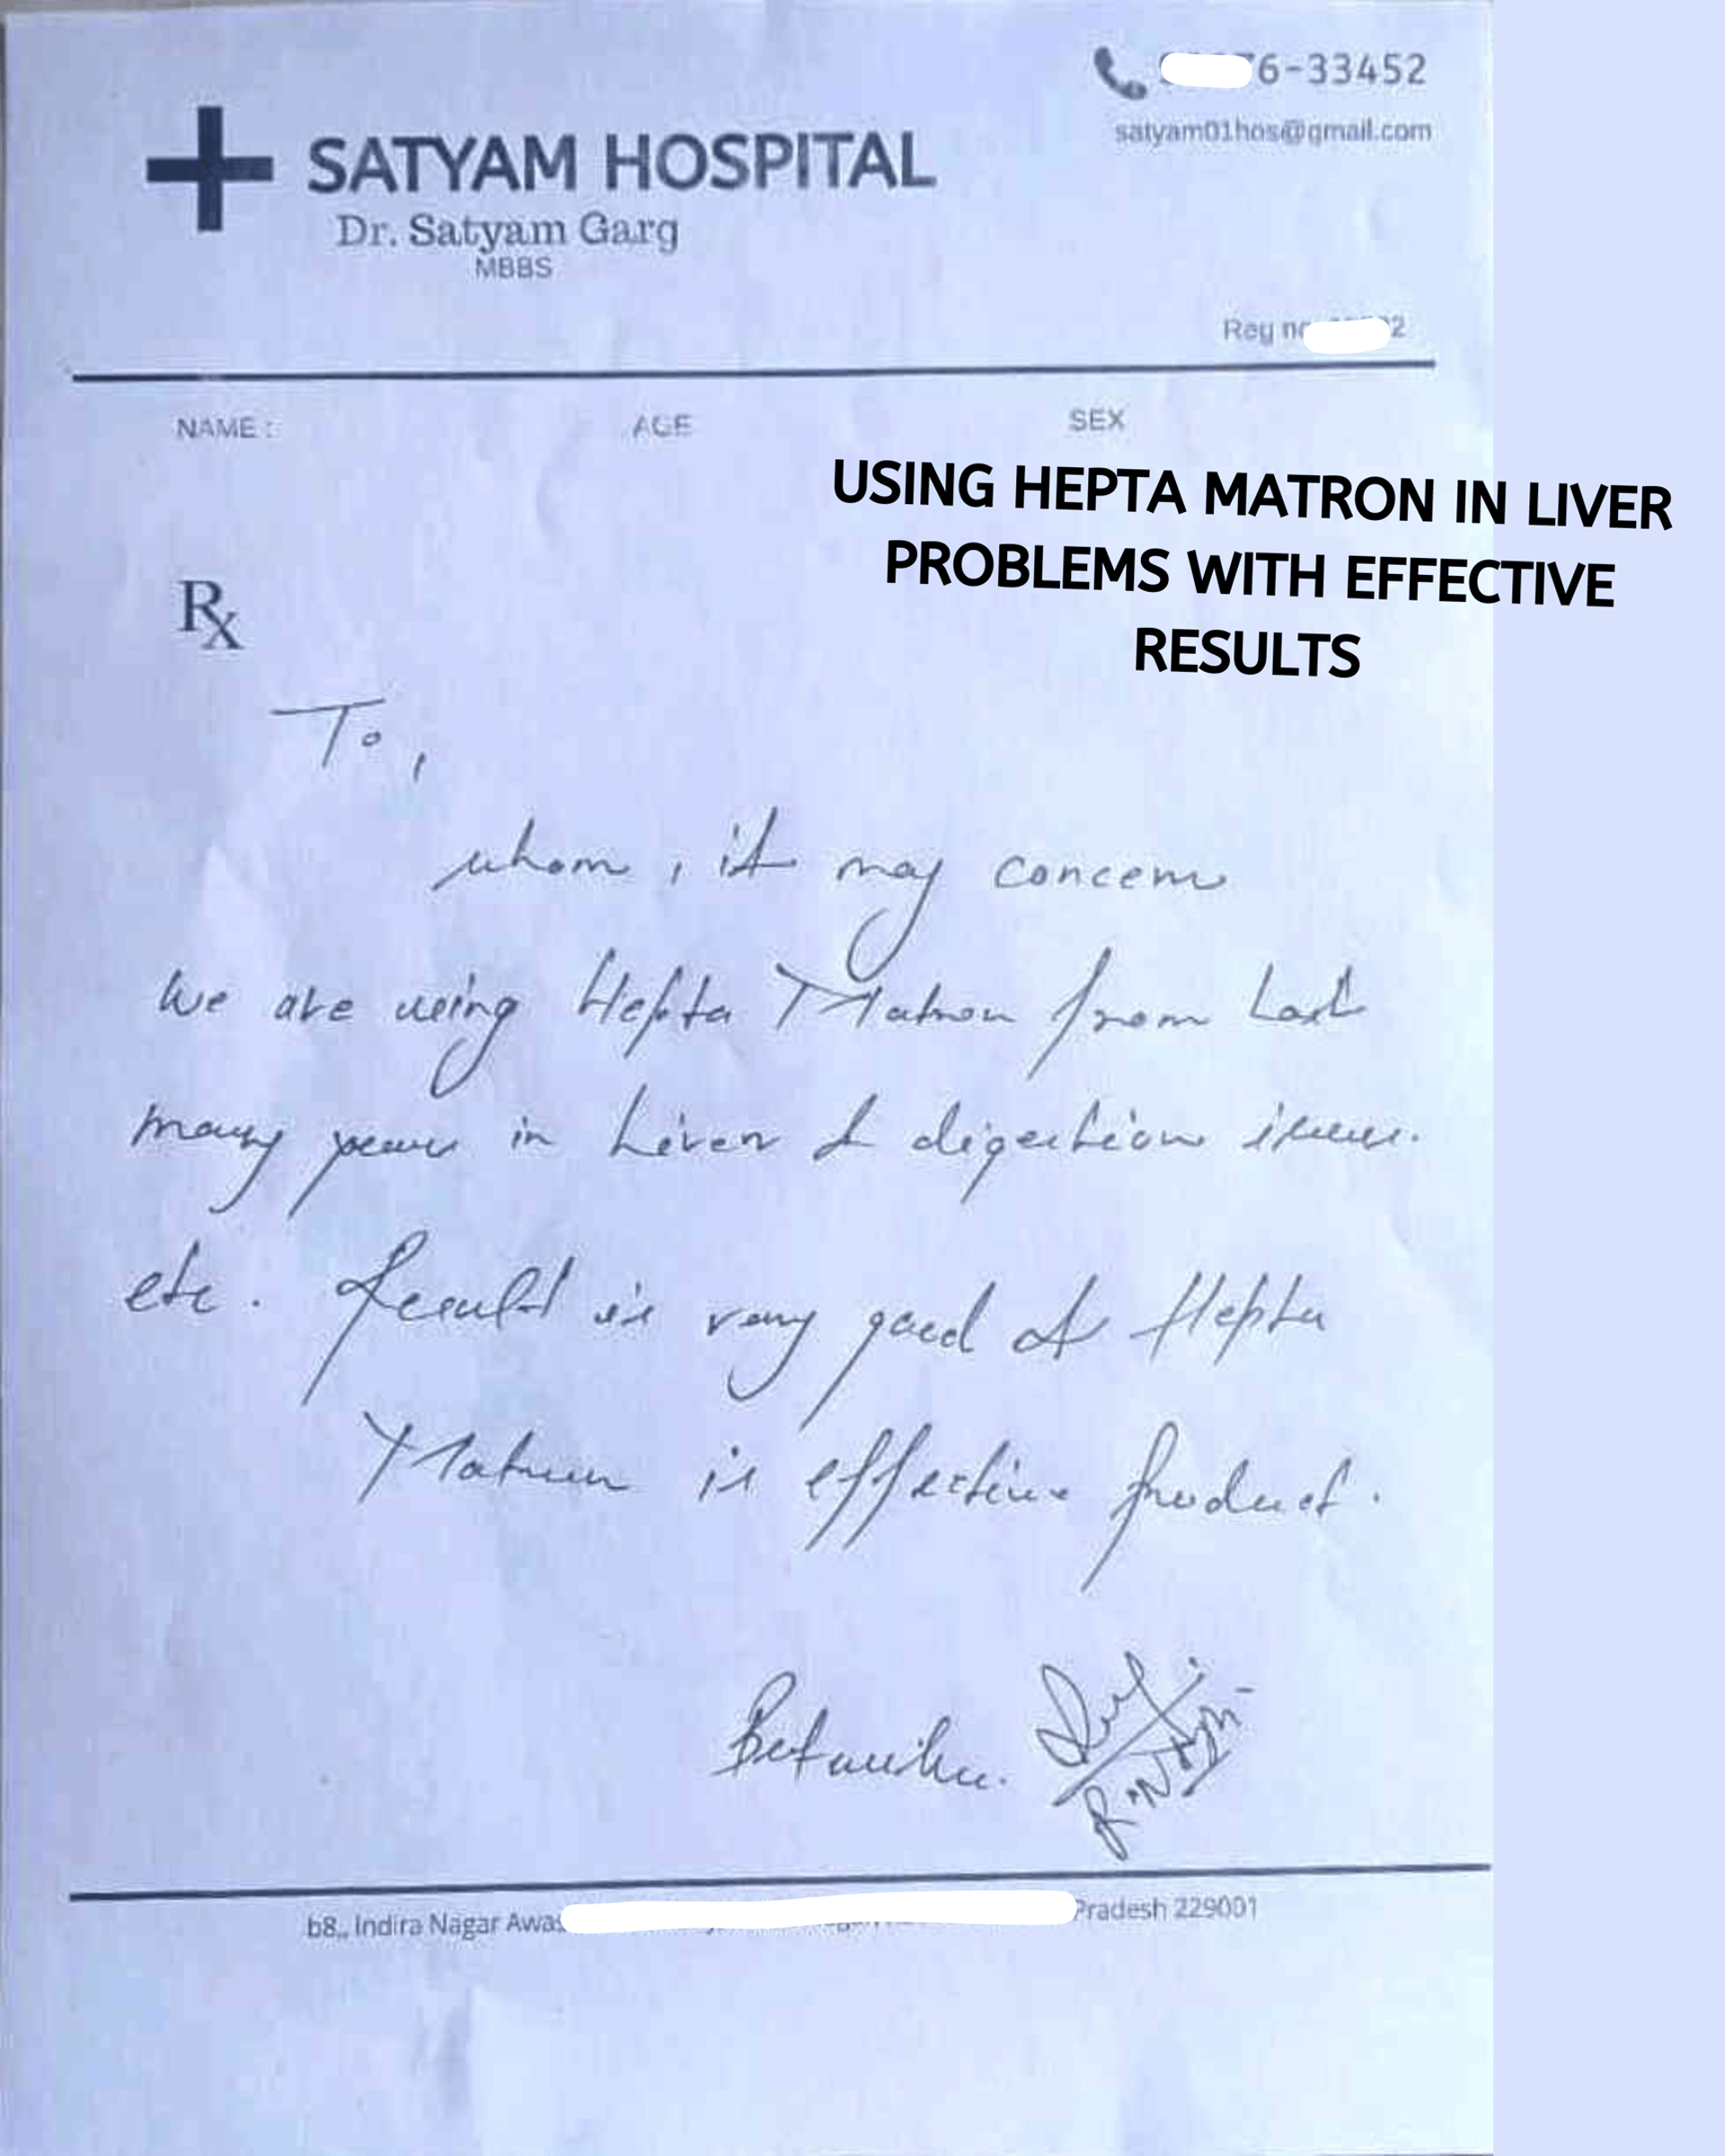 6-33452
satyam01hos@gmail.com
SATYAM HOSPITAL
Dr. Satyam Garg
MBBS
Reg no 2
NAME : AGE SEX
USING HEPTA MATRON IN LIVER
PROBLEMS WITH EFFECTIVE
RESULTS
Rx
To,
whom, it may concern
We are using Hepta Matron from Last
many years in Liver & digestion issues.
etc. Result is very good of Hepta
Matron is effective product.
b8,, Indira Nagar Awas Pradesh 229001